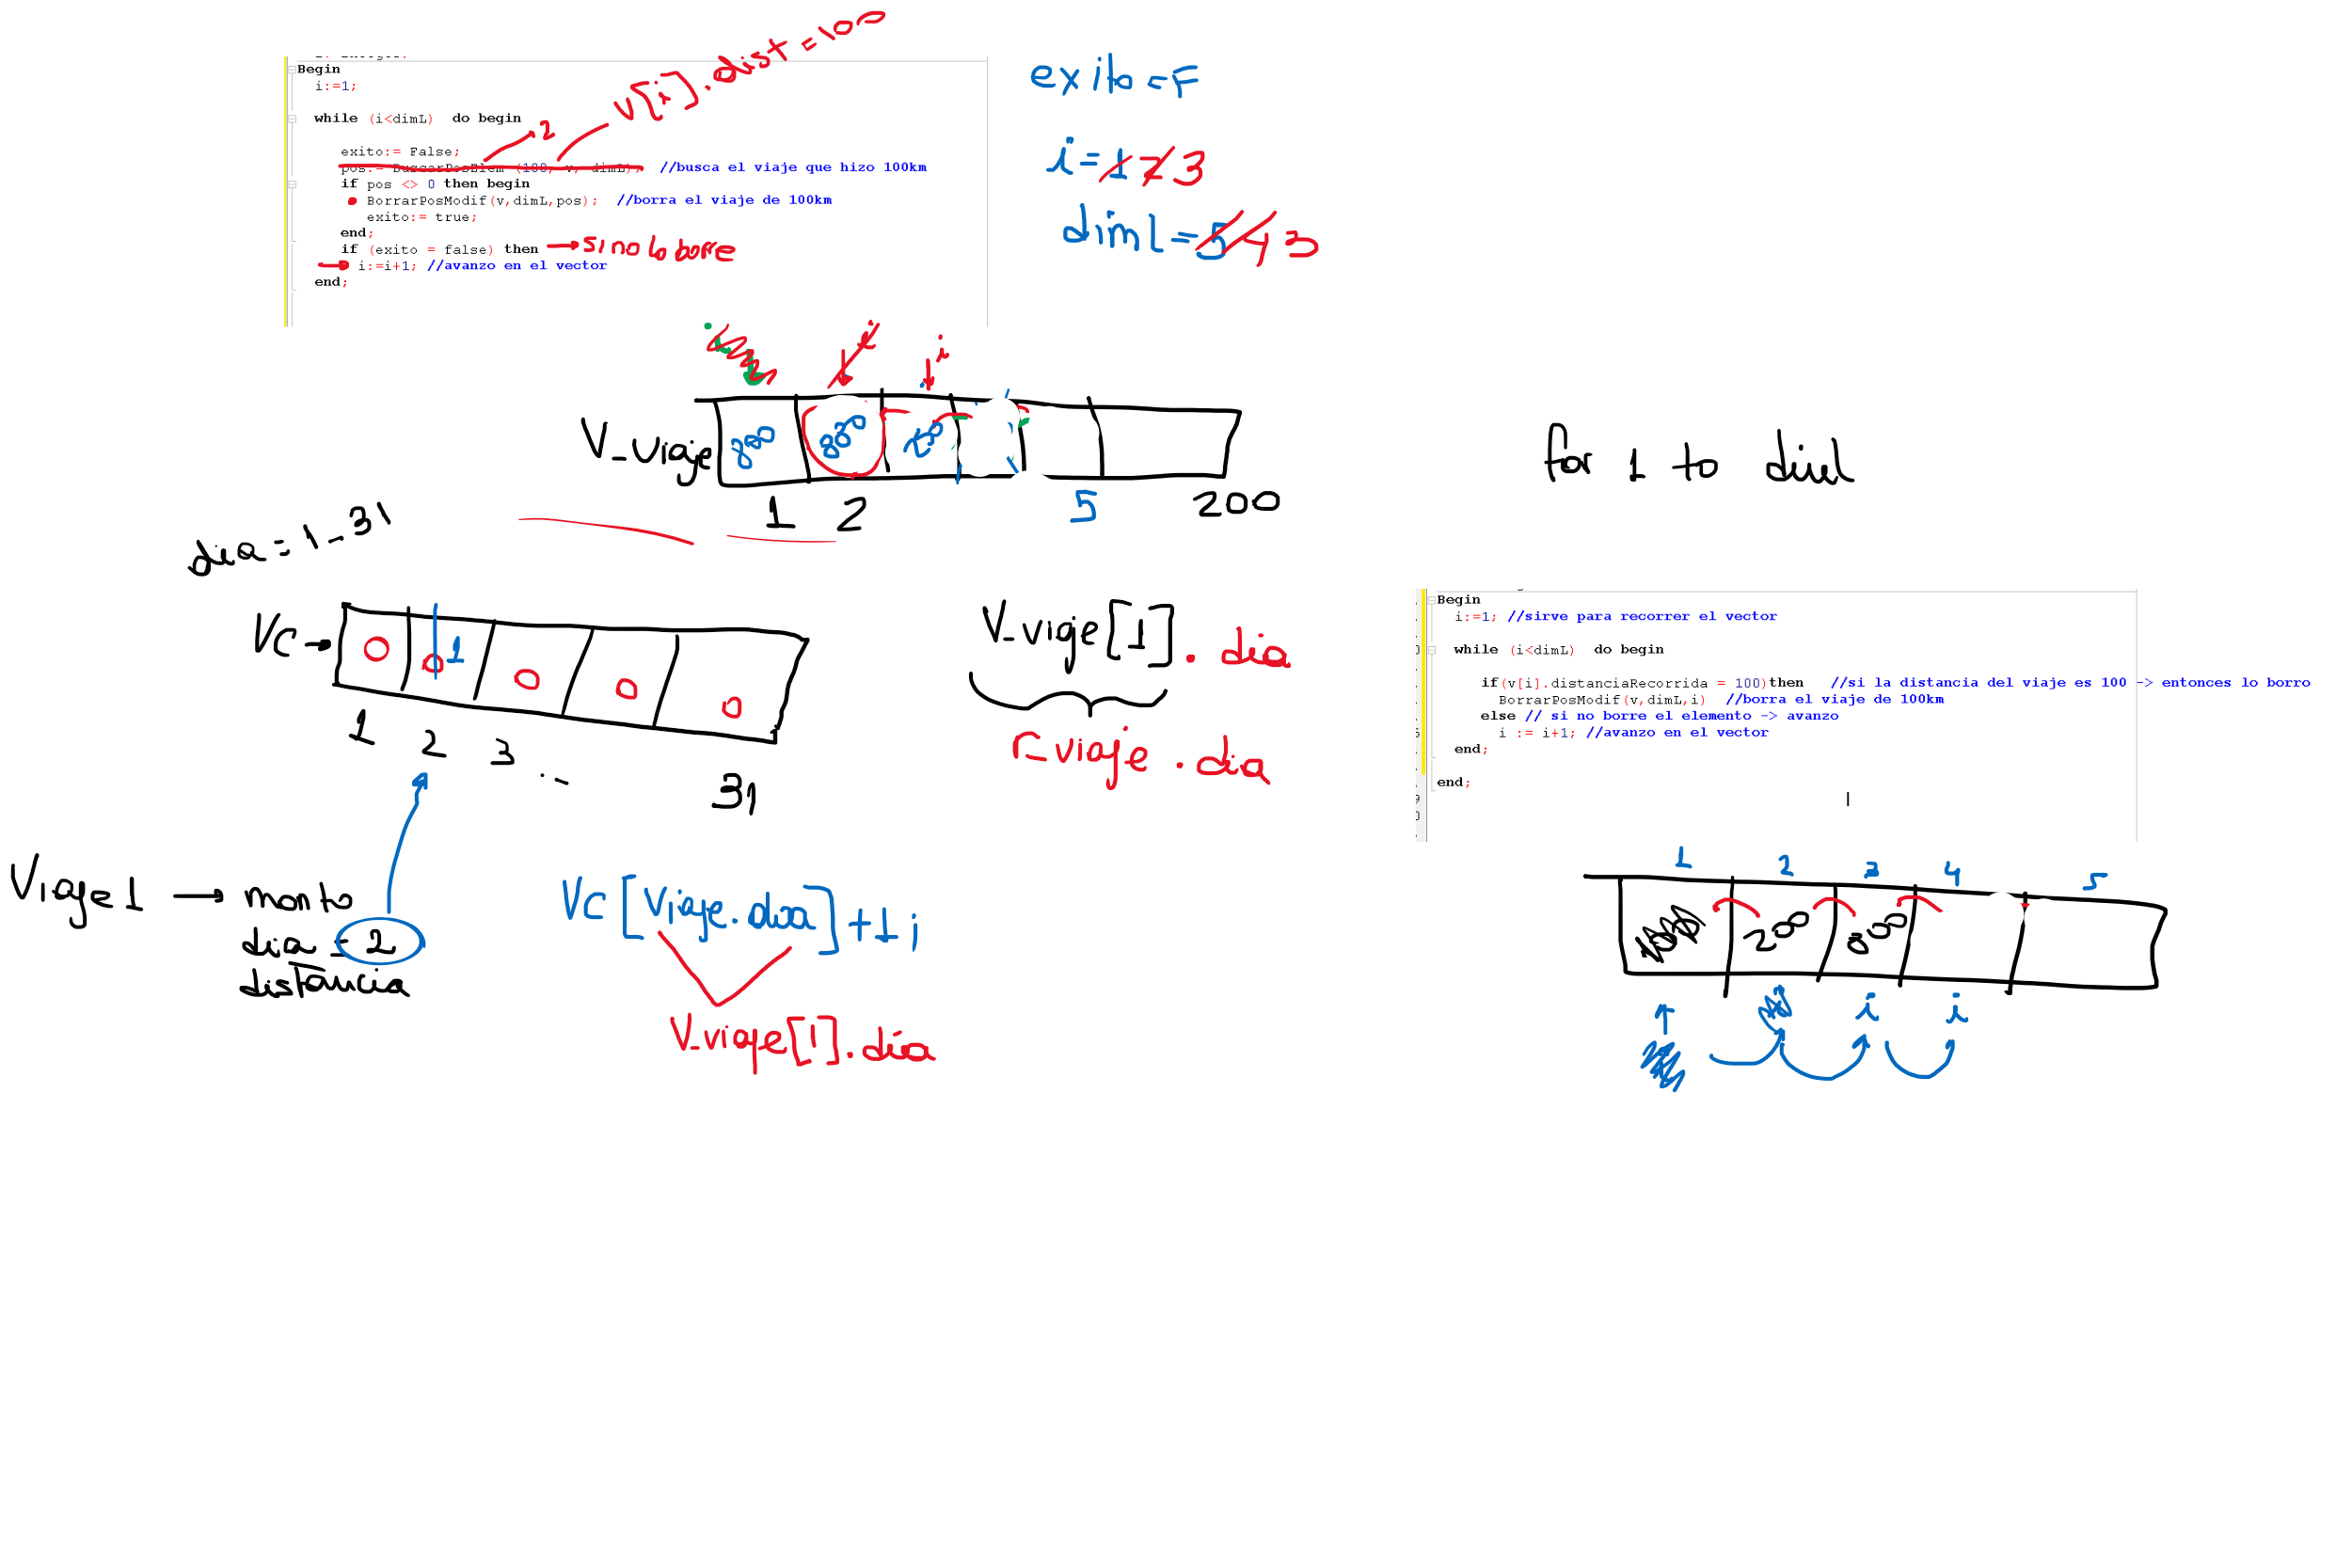 Begin
i:=1;
while (i<dimL) do begin
exito:= False;
pos:= BuscarPosElem (100, v, dimL); //busca el viaje que hizo 100km
if pos <> 0 then begin
BorrarPosModif(v,dimL,pos); //borra el viaje de 100km
exito:= true;
end;
if (exito = false) then → si no lo borre
i:=i+1; //avanzo en el vector
end;
2
v[i].dist=100
exito=F
i=1 2 3
diml=5 4 3
i
i
V_viaje
800
1 2 5 200
for 1 to diml
dia=1-31
VC→
0 0 1 0 0 0
1 2 3 .. 31
V_viaje[1].dia
r_viaje.dia
Begin
i:=1; //sirve para recorrer el vector
while (i<dimL) do begin
if(v[i].distanciaRecorrida = 100)then //si la distancia del viaje es 100 -> entonces lo borro
BorrarPosModif(v,dimL,i) //borra el viaje de 100km
else // si no borre el elemento -> avanzo
i := i+1; //avanzo en el vector
end;
end;
1 2 3 4 5
200 800
i i
Viaje 1 → monto
dia = 2
distancia
VC[Viaje.dia]+1;
V_viaje[1].dia